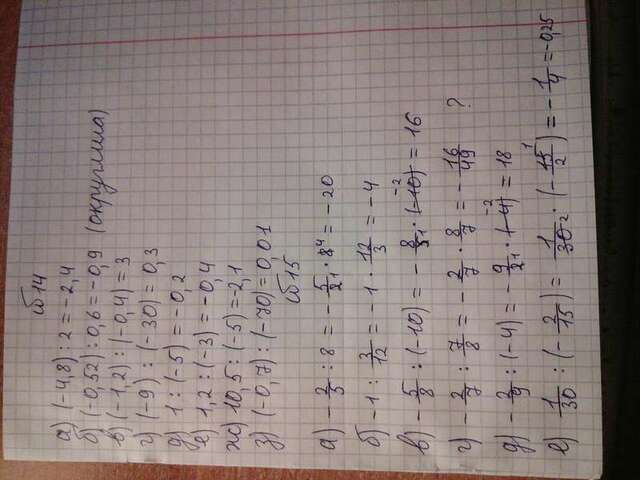 №14
а) (-4,8) : 2 = -2,4
б) (-0,52) : 0,6 = -0,9 (округлила)
в) (-1,2) : (-0,4) = 3
г) (-9) : (-30) = 0,3
д) 1 : (-5) = -0,2
е) 1,2 : (-3) = -0,4
ж) 10,5 : (-5) = -2,1
з) (-0,7) : (-70) = 0,01
№15
а) -2/5 : 8 = -5/2 · 8 = -20
б) -1 : 3/12 = -1 · 12/3 = -4
в) -5/8 : (-10) = -8/5 · (-10) = 16
г) -2/7 : 7/8 = -2/7 · 8/7 = -16/49 ?
д) -2/9 : (-4) = -9/2 · (-4) = 18
е) 1/30 : (-2/15) = 1/30 · (-15/2) = -1/4 = -0,25